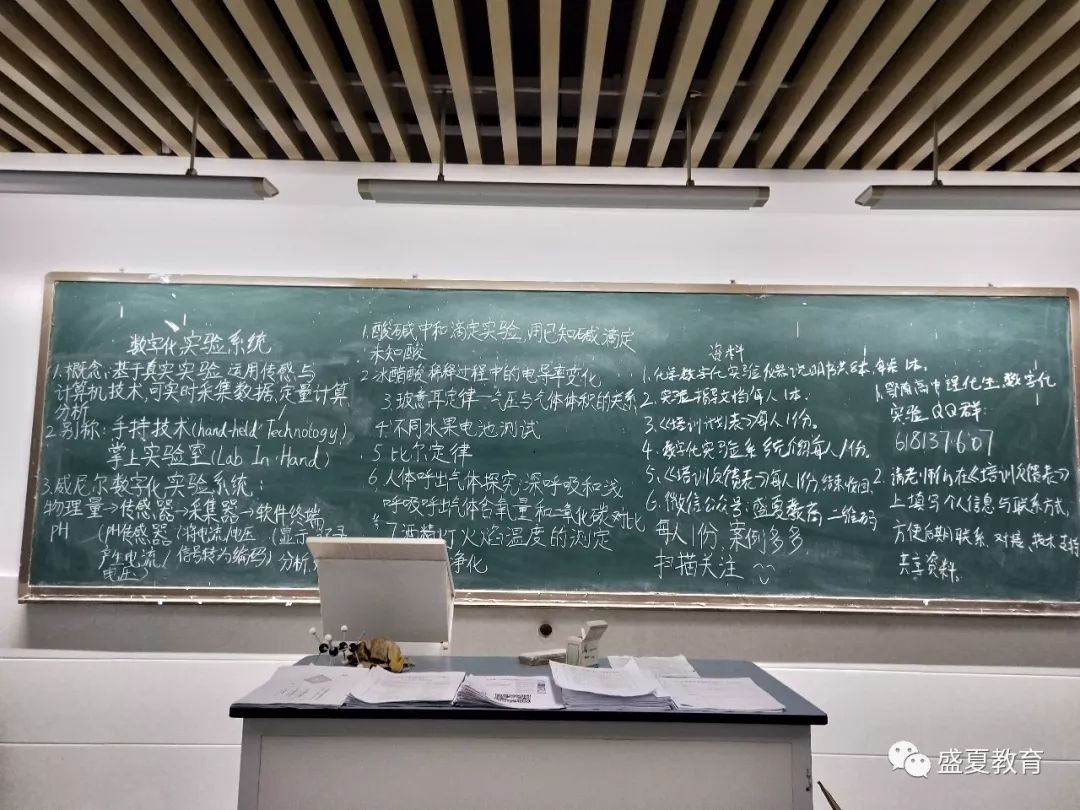 数字化实验系统
1.概念:基于真实实验,运用传感与
计算机技术,可实时采集数据,定量计算,
分析
2.别称:手持技术(hand-held Technology)
掌上实验室(Lab In Hand)
3.威尼尔数字化实验系统:
物理量→传感器→采集器→软件终端
PH (PH传感器 (将电流/电压 (显示
产生电流/ 信号转为编码) 分析
电压)
1.酸碱中和滴定实验,用已知碱滴定
未知酸
2.冰醋酸稀释过程中的电导率变化
3.玻意耳定律—气压与气体体积的关系
4.不同水果电池测试
5.比尔定律
6.人体呼出气体探究:深呼吸和浅
呼吸呼出气体含氧量和二氧化碳对比
7.酒精灯火焰温度的测定
净化
资料
1.化学数字化实验仪器说明书
2.实验指导文档每人1本.
3.《培训计划表》每人1份.
4.数字化实验系统介绍每人1份.
5.《培训反馈表》每人1份,结束收回.
6.微信公众号:盛夏教育二维码
每人1份,案例多多
扫描关注
1.高中理化生数字化
实验QQ群:
618137607
2.请老师们在《培训反馈表》
上填写个人信息与联系方式,
方便后期联系、对接、技术支持
共享资料.
盛夏教育